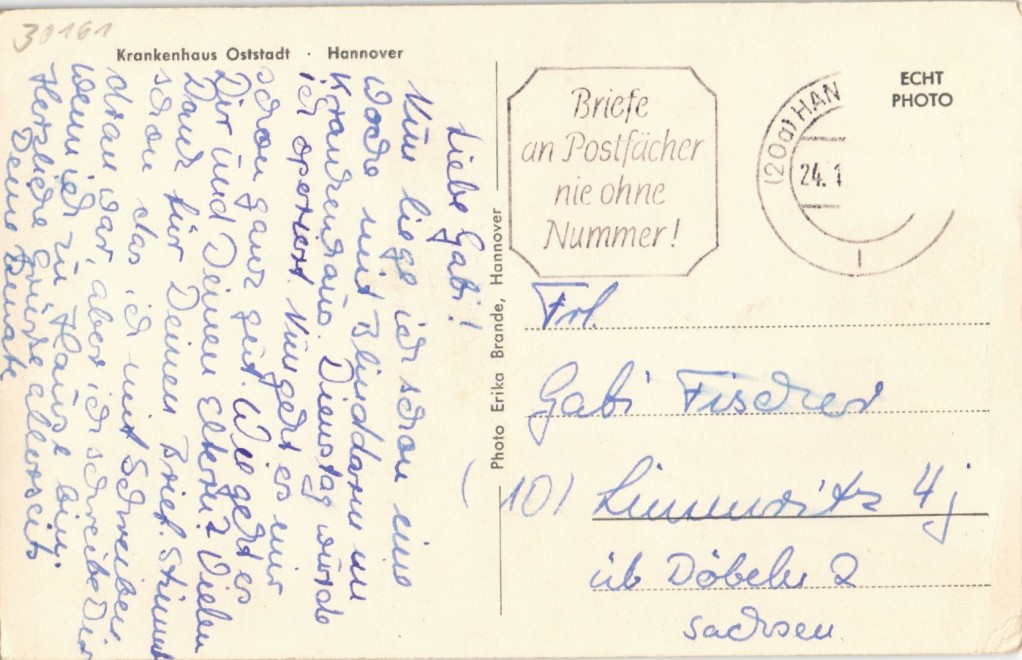 30161
Krankenhaus Oststadt · Hannover
Liebe Gabi!
Nun liege ich schon eine
Woche mit Blinddarm im
Krankenhaus. Dienstag wurde
ich operiert. Nun geht es mir
schon ganz gut. Wie geht es
Dir und Deinen Eltern? Vielen
Dank für Deinen Brief. Stimmt
schon das ich mit Schreiben
dran war, aber ich schreibe Dir
wenn ich zu Hause bin.
Herzliche Grüsse allerseits
Deine Renate
Photo Erika Brande, Hannover
Briefe
an Postfächer
nie ohne
Nummer!
(20a) HAN
24. 1
ECHT
PHOTO
Frl.
Gabi Fischer
(10) Limmritz 4j
üb Döbeln 2
Sachsen.